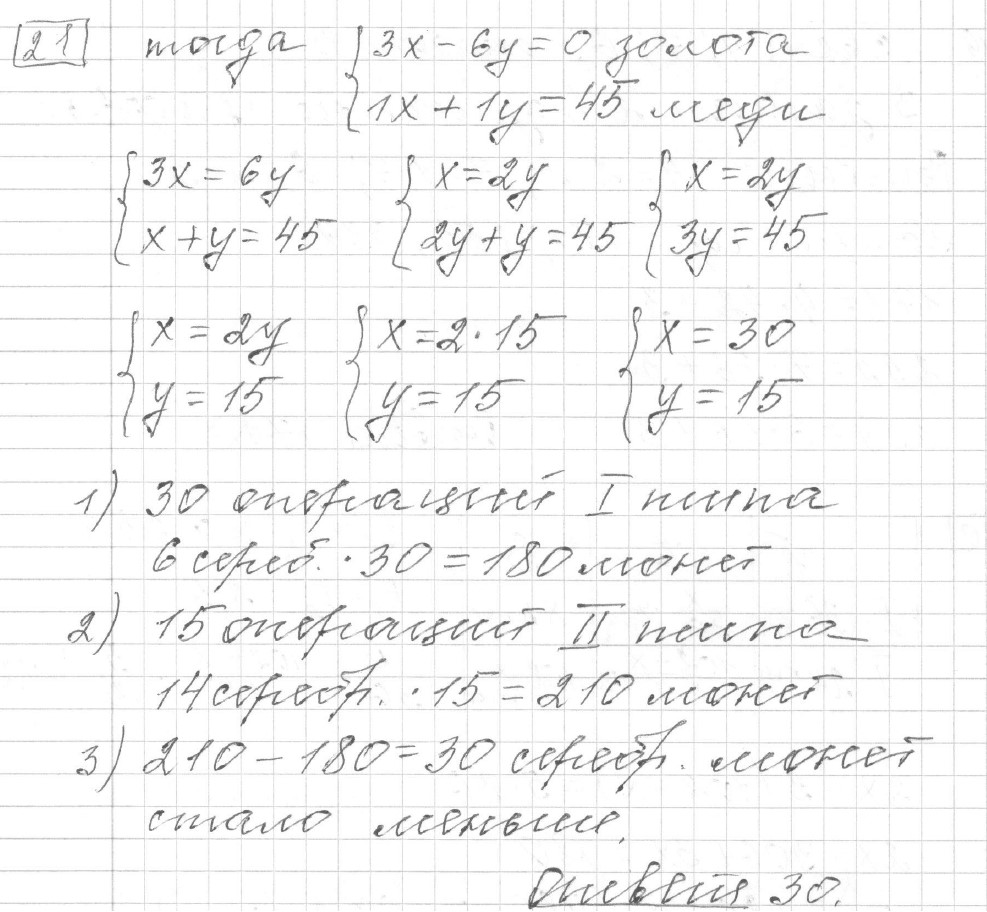 21 тогда { 3x - 6y = 0 золота
1x + 1y = 45 меди
{ 3x = 6y { x = 2y { x = 2y
x + y = 45 2y + y = 45 3y = 45
{ x = 2y { x = 2·15 { x = 30
y = 15 y = 15 y = 15
1) 30 операций I типа
6 сереб. · 30 = 180 монет
2) 15 операций II типа
14 серебр. · 15 = 210 монет
3) 210 - 180 = 30 серебр. монет
стало меньше.
Ответ 30.